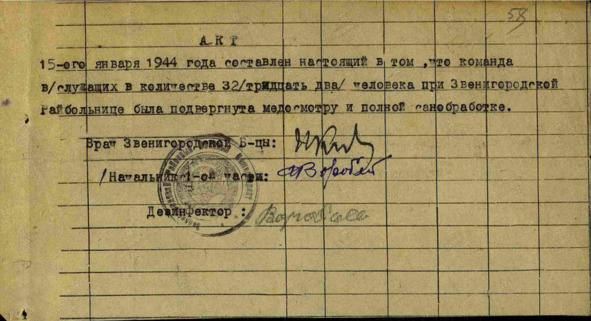 58
АКТ
15-ого января 1944 года составлен настоящий в том ,что команда
в/служащих в количестве 32/тридцать два/ человека при Звенигородской
Райбольнице была подвергнута медосмотру и полной санобработке.
Врач Звенигородской Б-цы:
/Начальник 1-ой части:
Дезинфектор :